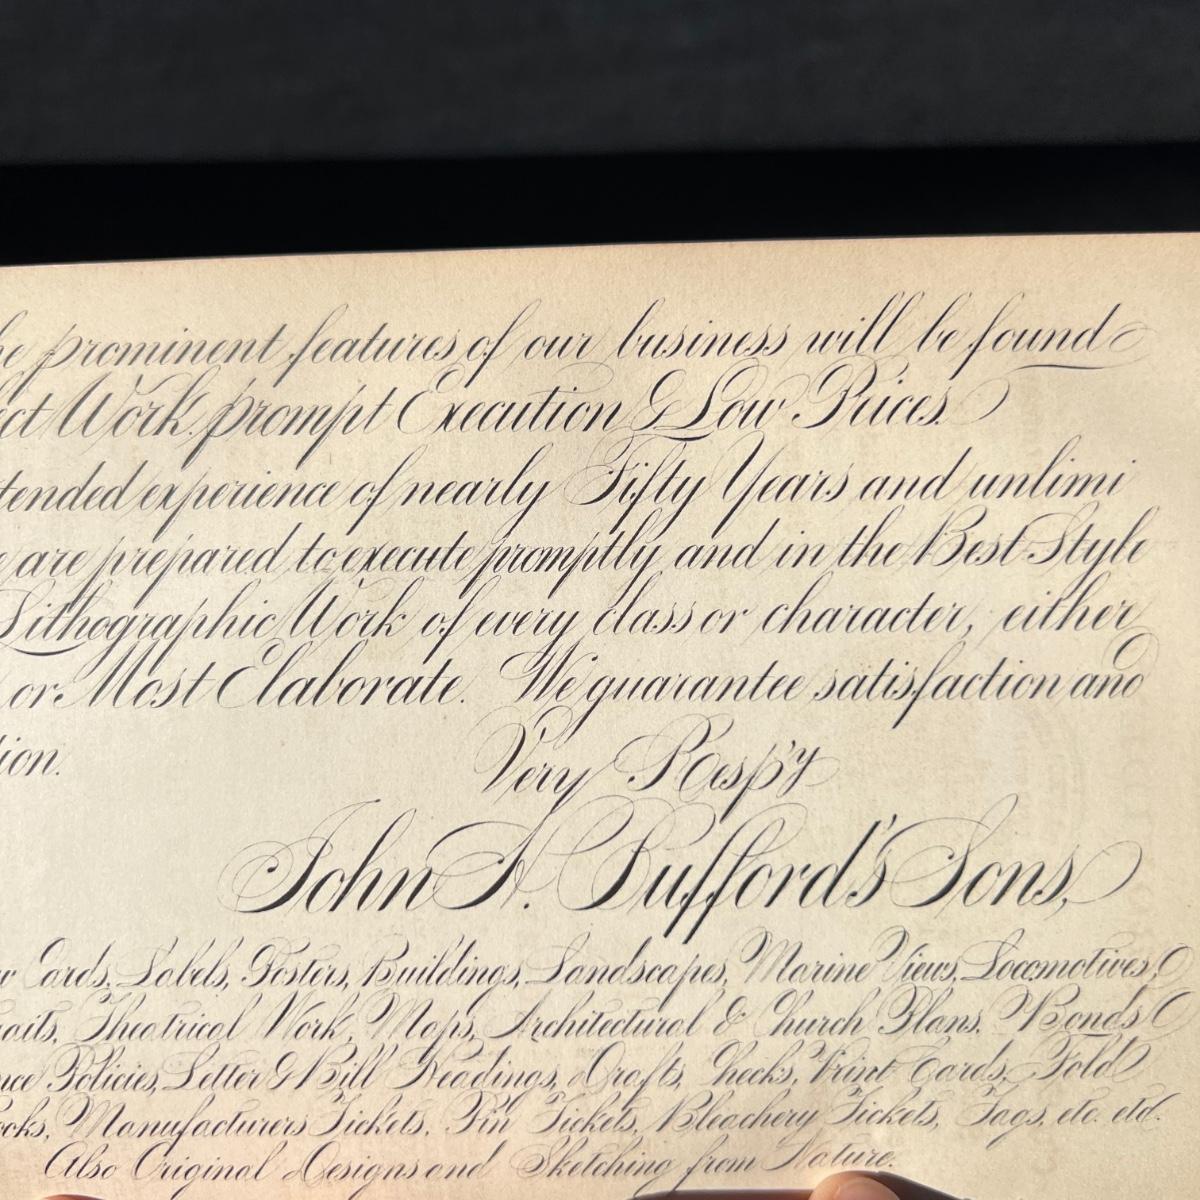 he prominent features of our business will be found
ct Work, prompt Execution & Low Prices.
tended experience of nearly Fifty Years and unlimi
e are prepared to execute promptly and in the Best Style
Lithographic Work of every class or character, either
or Most Elaborate. We guarantee satisfaction and
ion.
Very Resp'y
John H. Bufford's Sons,
w Cards, Labels, Posters, Buildings, Landscapes, Marine Views, Locomotives,
aits, Theatrical Work, Maps, Architectural & Church Plans, Bonds
nce Policies, Letter & Bill Headings, Drafts, Checks, Print Cards, Fold
ooks, Manufacturers Tickets, Pin Tickets, Bleachery Tickets, Tags, etc. etc.
Also Original Designs and Sketching from Nature.